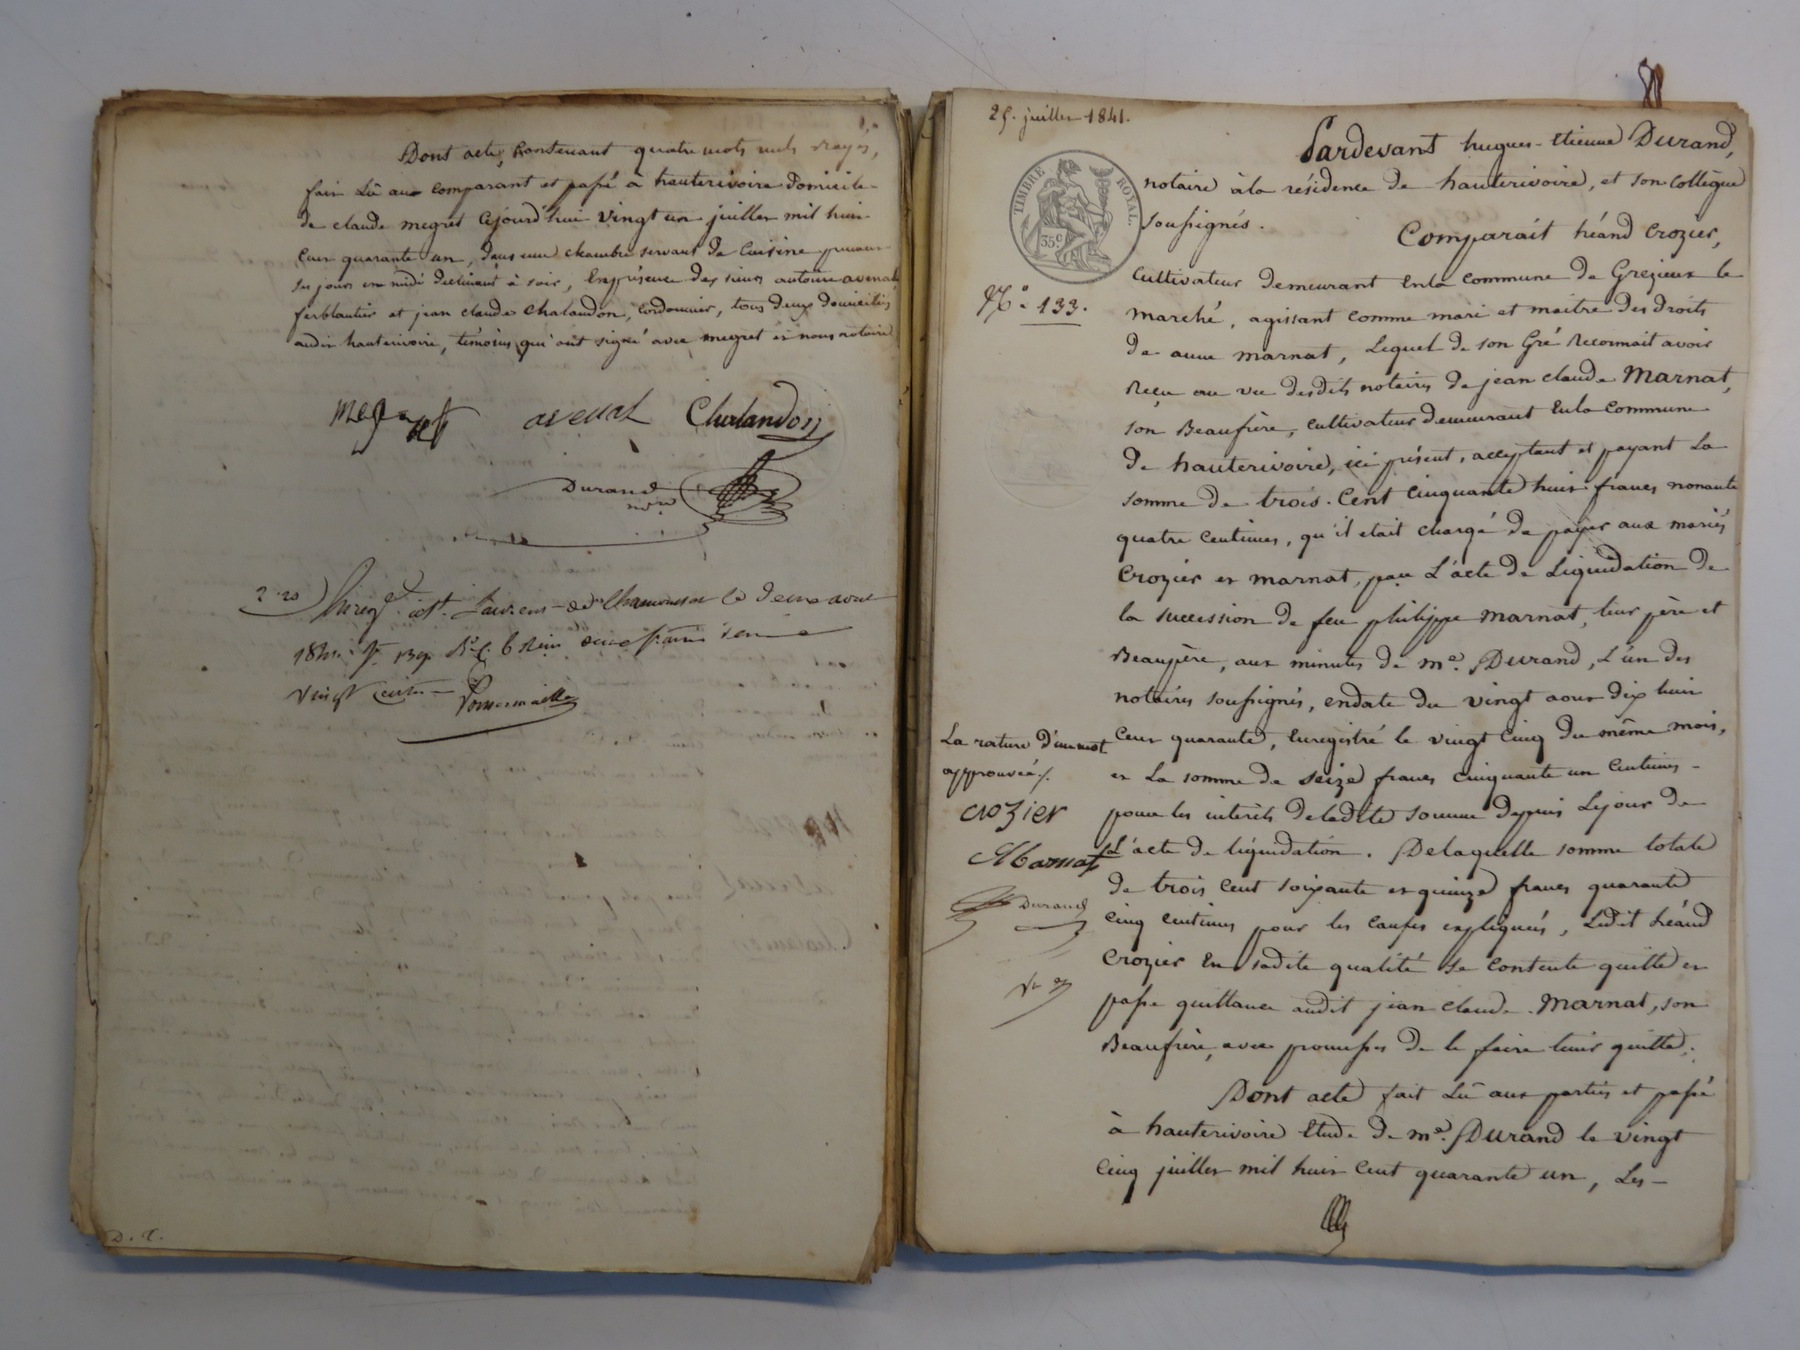 Dont acte, contenant quatre mots nuls rayés,
fait Lû au comparant et passé à hauterivoire domicile
de claude megret cejourd'hui vingt un juillet mil huit
cent quarante un, dans une chambre servant de cuisine prenant
ses jours en midi declinant à soir, En présence des sieurs antoine avenal
ferblantier et jean claude Chalandon, Cordonnier, tous deux domiciliés
audit hauterivoire, témoins qui ont signé avec megret et nous notaire
Megret avenal Chalandon
Durand
nre
2.20
Enregé. à St. Laurent-de-Chamousset le deux août
1841 fo 139 Ro C. 6 Reçu deux francs
vingt centes
D. C.
25. juillet 1841.
TIMBRE ROYAL.
35c
No. 133.
Pardevant hugues-Etienne Durand,
notaire à la résidence de hauterivoire, et son Collègue
soussignés.
Comparait Léand Crozier,
Cultivateur demeurant En la Commune de Grezieux le
marché, agissant comme mari et maitre des droits
de anne Marnat, Lequel de son Gré Reconnait avoir
Reçu au vu desdits notaires de jean claude Marnat,
son Beaufrère, Cultivateur demeurant En la Commune
de hauterivoire, ici présent, acceptant et payant La
somme de trois Cent Cinquante huit francs nonante
quatre Centimes, qu'il etait chargé de payer aux mariés
Crozier et Marnat, par L'acte de Liquidation de
la succession de feu philippe Marnat, leur père et
Beaupère, aux minutes de me. Durand, L'un des
notaires soussignés, en date du vingt aout dix huit
Cent quarante, Enregistré le vingt Cinq du même mois,
et La somme de seize francs Cinquante un Centimes
pour les intérêts de ladite somme depuis Le jour de
L'acte de liquidation. De laquelle somme totale
de trois Cent soixante et quinze francs quarante
Cinq Centimes pour les Causes expliquées, Ledit Léand
Crozier En sadite qualité se contente quitte et
passe quittance audit jean claude Marnat, son
Beaufrère, avec promesses de le faire tenir quitte.
Dont acte fait Lû aux parties et passé
à hauterivoire Etude de me. Durand le vingt
Cinq juillet mil huit Cent quarante un, Les
La rature d'un mot
approuvée
Crozier
Marnat
Durand